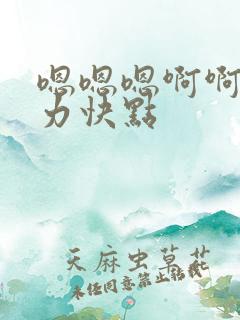 嗯嗯嗯啊啊
力快點
天麻虫草花
未经同意禁止转载